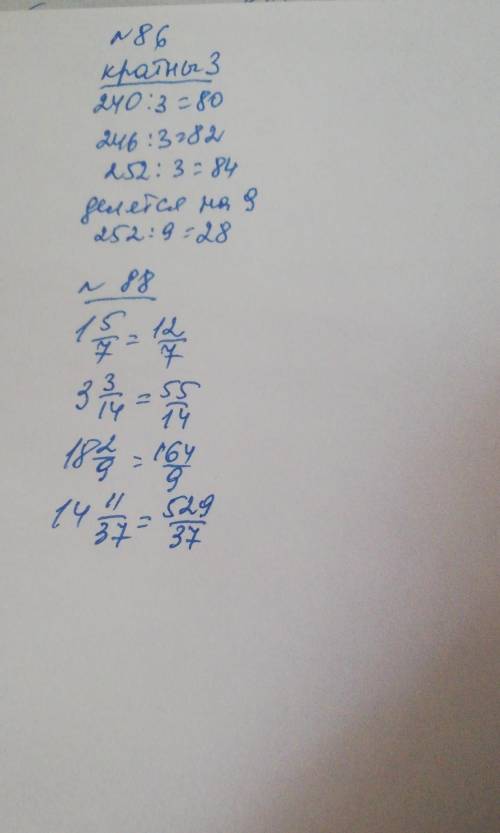 №86
кратны 3
240 : 3 = 80
246 : 3 = 82
252 : 3 = 84
делятся на 9
252 : 9 = 28
№ 88
1 5/7 = 12/7
3 3/14 = 55/14
18 2/9 = 164/9
14 11/37 = 529/37